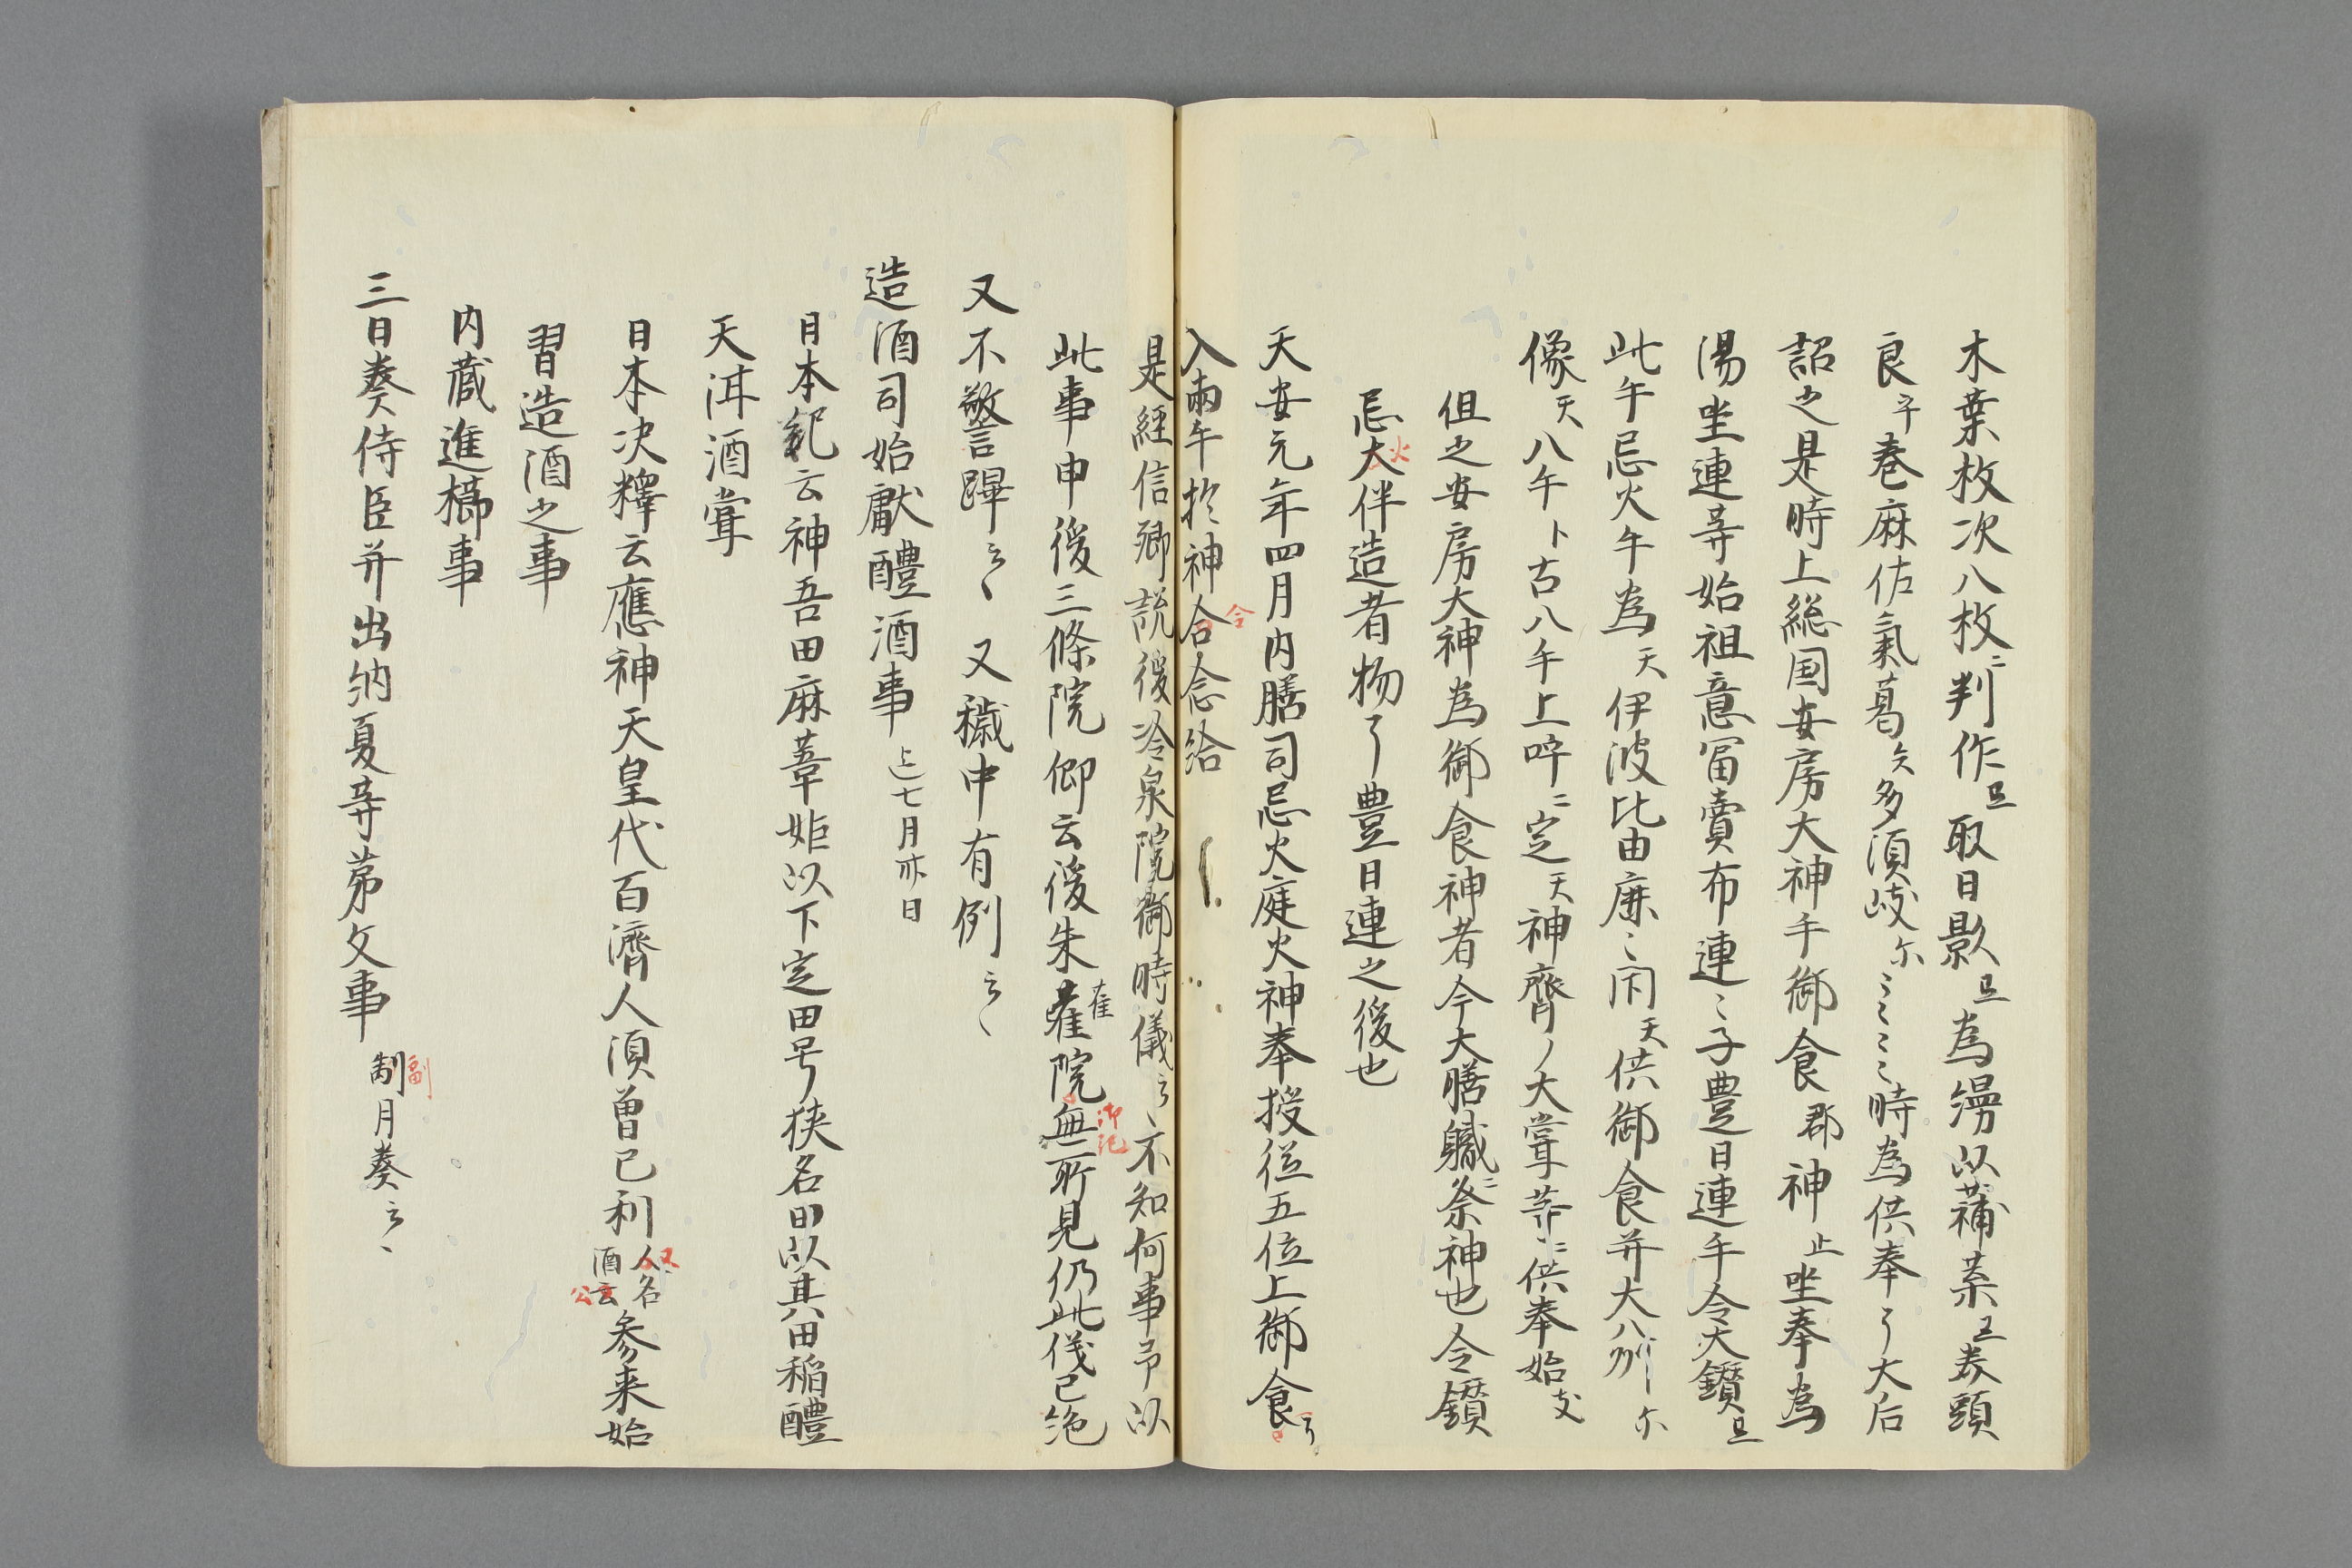 木葉枚次八枚ニ判作旦取日影旦為縵以蒲葉旦表頭
良乎巻麻佐氣葛矢多須岐尓ミミミミ時為供奉了大后
詔之是時上総国安房大神手御食郡神止坐奉為
湯坐連䒭始祖意冨賣布連ミ子豊日連手令大鑚旦
此午忌火午為天伊波比由麻ミ閇天供御食并大八州尓
像天八午ト古八午上哖ニ定天神齊ノ大甞䒭ニ供奉始支
但之安房大神為御食神者今大膳軄ニ祭神也令鑚
忌大伴造者物了豊日連之後也
火
天安元年四月内膳司忌火庭火神奉授従五位上御食了
入兩午扵神合念给
令
是經信卿説後冷泉院御時儀云〻不知何事予以
此事申後三條院仰云後朱雀院無所見仍此儀已绝
雀
御記
又不警蹕云〻又穢中有例云〻
造酒司始獻醴酒事 上七月卅日
日本紀云神吾田麻葦姫以下定田号狭名田以其田稲醴
天洱酒甞
日本决釋云應神天皇代百濟人須曽己利人名酒云参来始
又
公
習造酒之事
内蔵進櫛事
三日奏侍臣并出納夏䒭苐文事 制月奏云〻
副